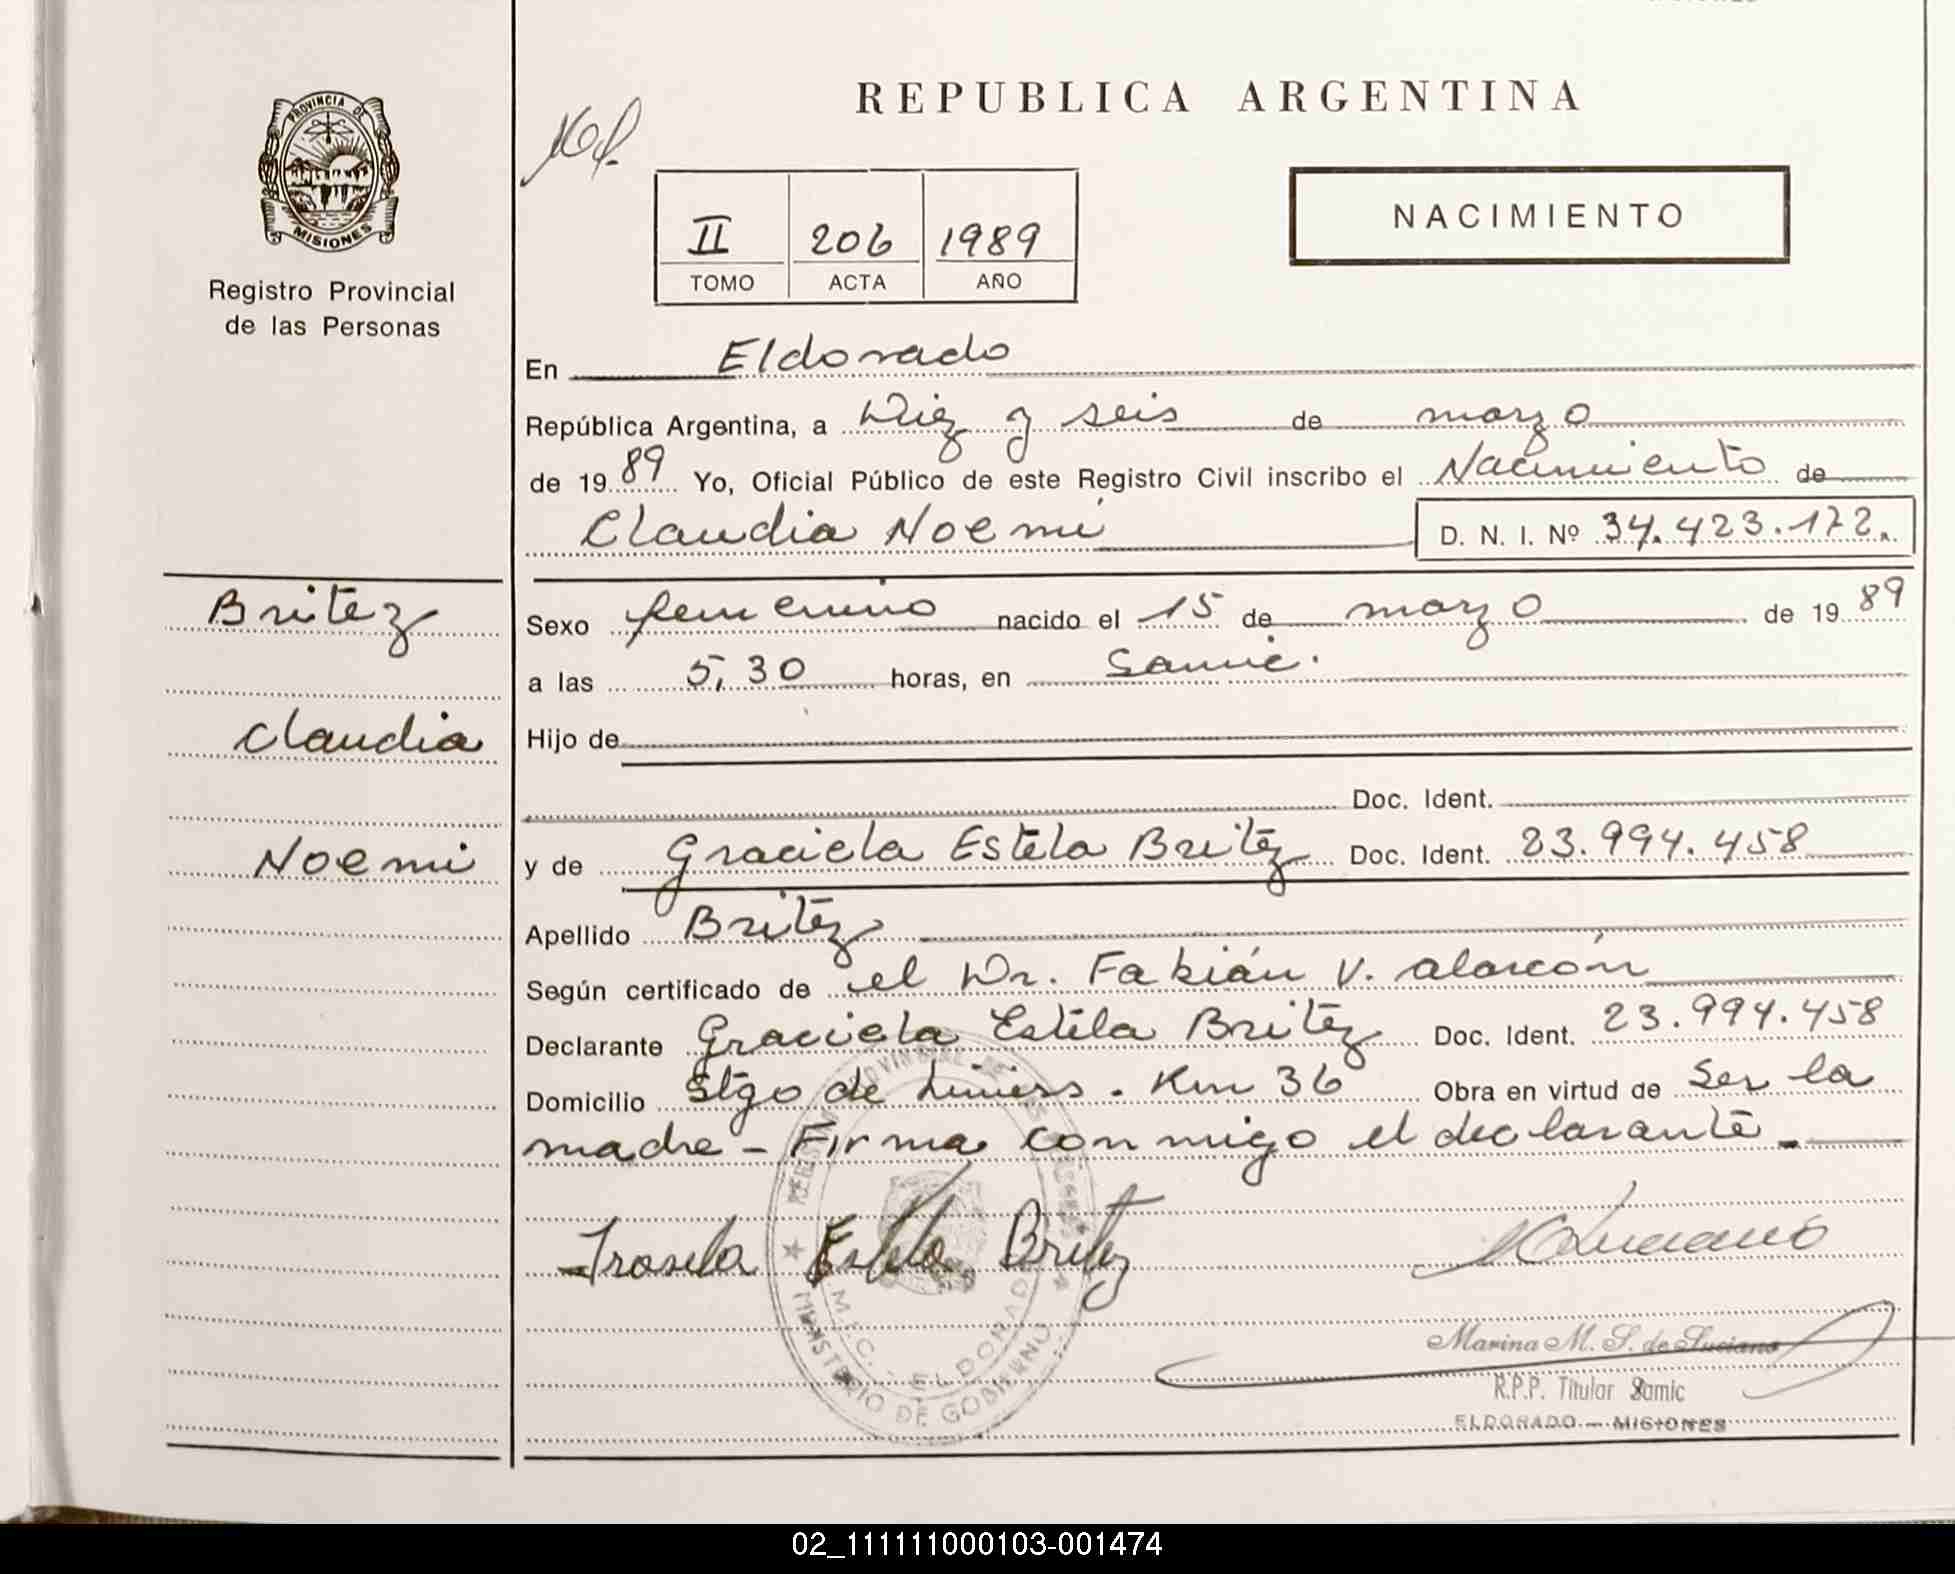 PROVINCIA DE
MISIONES
Registro Provincial
de las Personas
REPUBLICA ARGENTINA
NACIMIENTO
II 206 1989
TOMO ACTA AÑO
En Eldorado
República Argentina, a Diez y seis de marzo
de 1989 Yo, Oficial Público de este Registro Civil inscribo el Nacimiento de
Claudia Noemí
D. N. I. Nº 34.423.172.
Britez
Claudia
Noemi
Sexo femenino nacido el 15 de marzo de 1989
a las 5,30 horas, en Samic.
Hijo de
Doc. Ident.
y de Graciela Estela Britez Doc. Ident. 23.994.458
Apellido Britez
Según certificado de el Dr. Fabián V. Alarcón
Declarante Graciela Estela Britez Doc. Ident. 23.994.458
Domicilio Stgo de Liniers. Km 36 Obra en virtud de Ser la
madre - Firma conmigo el declarante.-
Estela Britez
MINISTERIO DE GOBIERNO
ELDORADO
Marina M. S. de Luciano
R.P.P. Titular Samic
ELDORADO - MISIONES
02_111111000103-001474